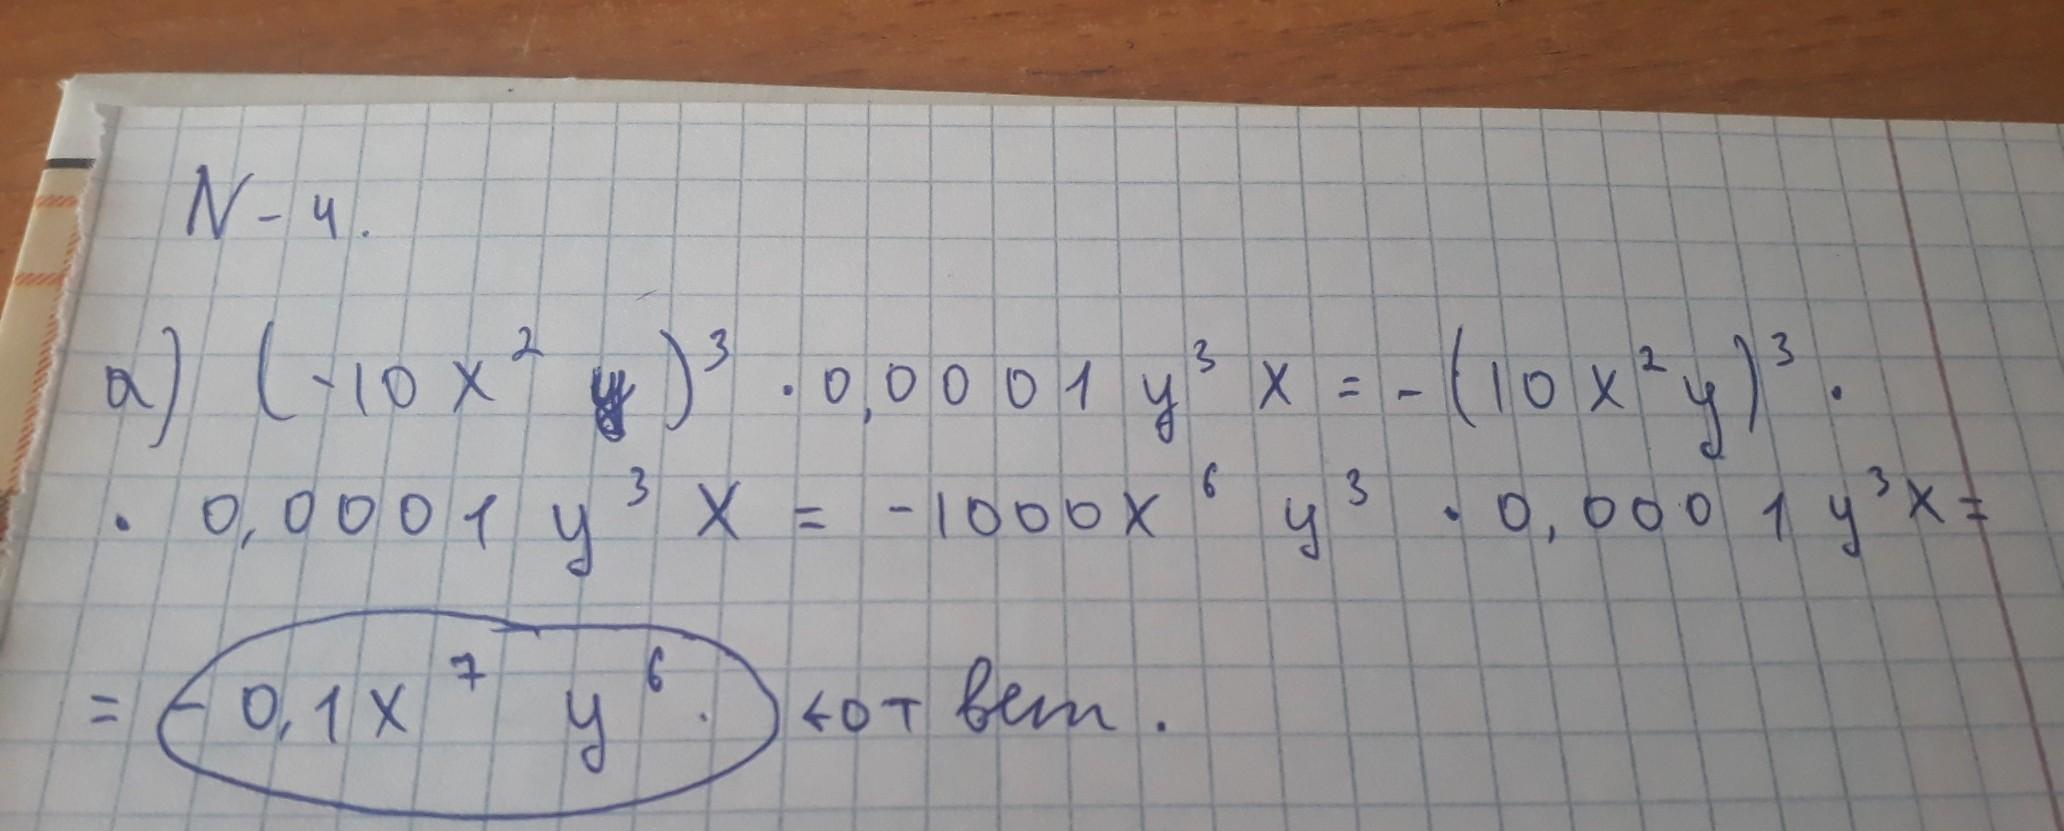 N-4.
а) (-10x² y)³ · 0,0001 y³ x = -(10x² y)³ ·
· 0,0001 y³ x = -1000x⁶ y³ · 0,0001 y³ x =
= -0,1x⁷ y⁶. ← ответ.